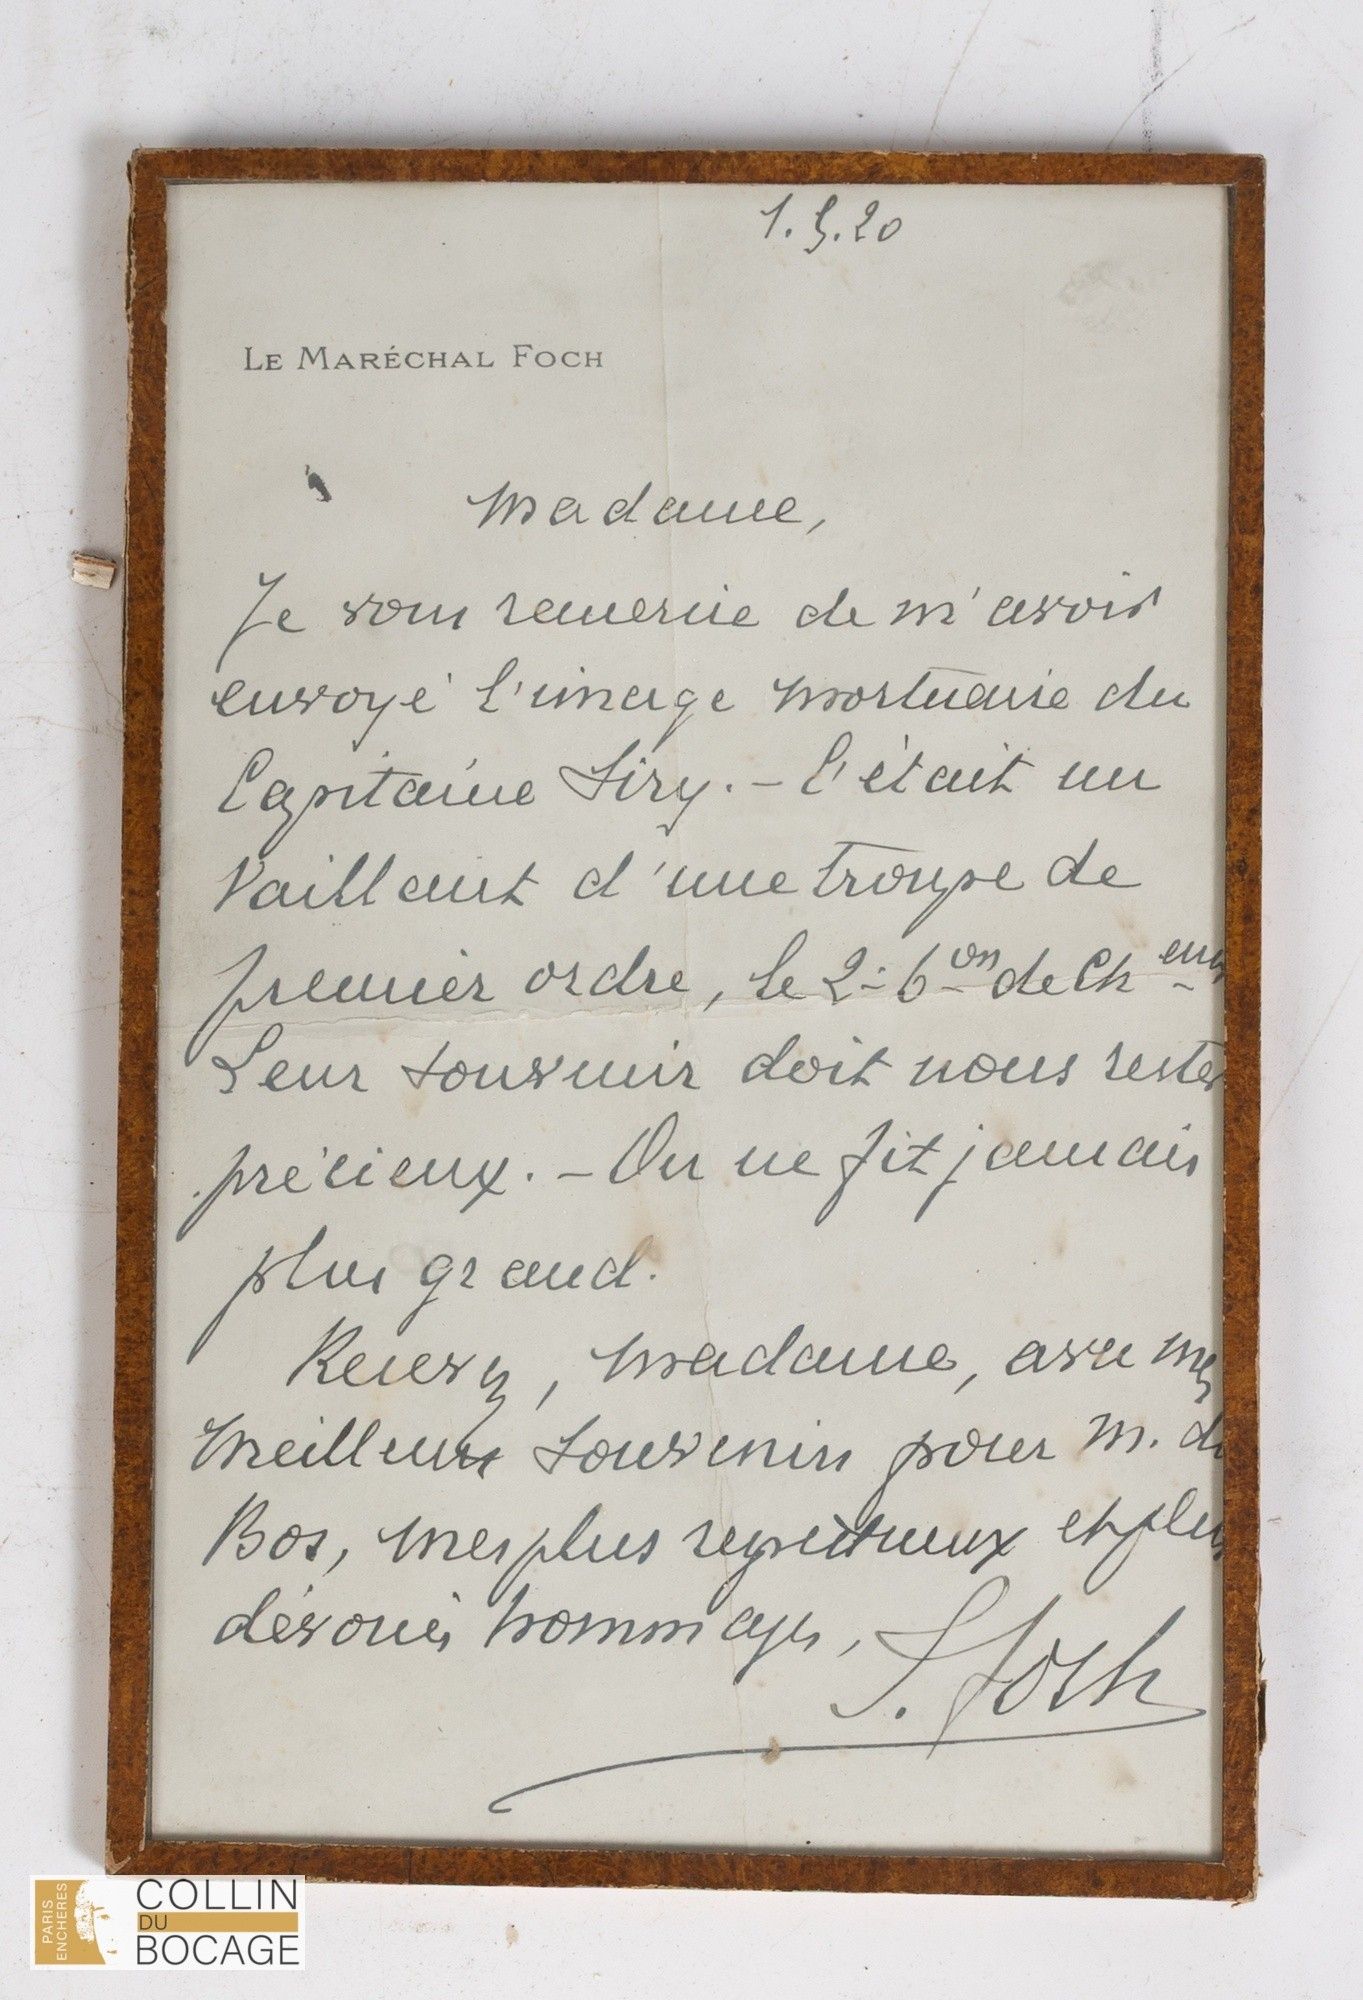 1.5.20
LE MARÉCHAL FOCH
Madame,
Je vous remercie de m'avoir
envoyé l'image mortuaire du
Capitaine Siry. – C'était un
Vaillant d'une troupe de
premier ordre, le 2e bon de Cheurs
Leur souvenir doit nous rester
précieux. – On ne fit jamais
plus grand.
Recevez, Madame, avec mes
meilleurs souvenirs pour M. du
Bos, mes plus respectueux et plus
dévoués hommages,
F. Foch
PARIS
ENCHERES
COLLIN
DU
BOCAGE